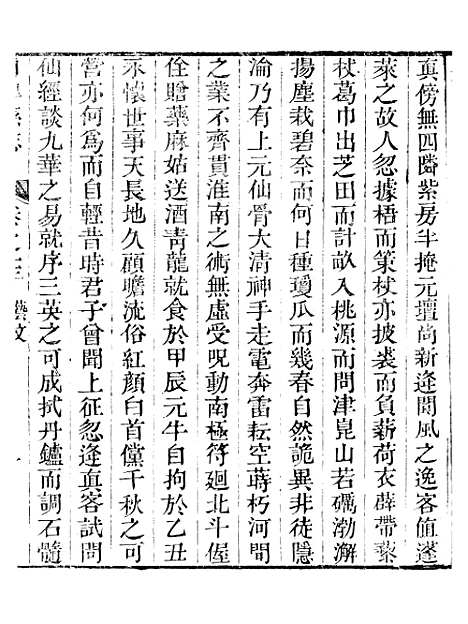 真傍無四隣紫房半掩元壇尚新逢閬風之逸客值蓬
萊之故人忽據梧而策杖亦披裘而負薪荷衣薜帶藜
杖葛巾出芝田而計畝入桃源而問津崑山若礪渤澥
揚塵栽碧奈而何日種瓊瓜而幾春自然詭異非徒隱
淪乃有上元仙骨大清神手走電奔雷耘空蒔朽河間
之業不齊貴淮南之術無虛受呪動南極符廻北斗偓
佺贈藥麻姑送酒靑龍就食於甲辰元牛自拘於乙丑
永懷世事天長地久顧瞻流俗紅顏白首儻千秋之可
營亦何爲而自輕昔時君子曾聞上征忽逢眞客試問
仙經談九華之易就序三英之可成拭丹鑪而調石髓
藝文